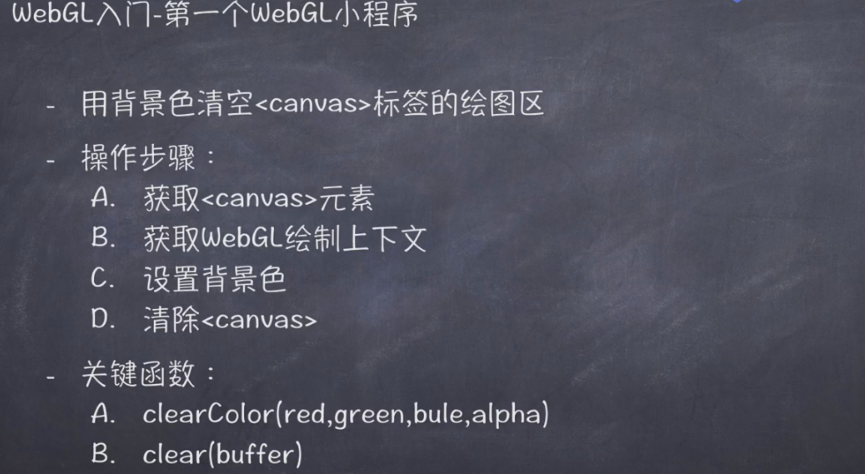 WebGL入门-第一个WebGL小程序
- 用背景色清空<canvas>标签的绘图区
- 操作步骤：
A. 获取<canvas>元素
B. 获取WebGL绘制上下文
C. 设置背景色
D. 清除<canvas>
- 关键函数：
A. clearColor(red,green,bule,alpha)
B. clear(buffer)